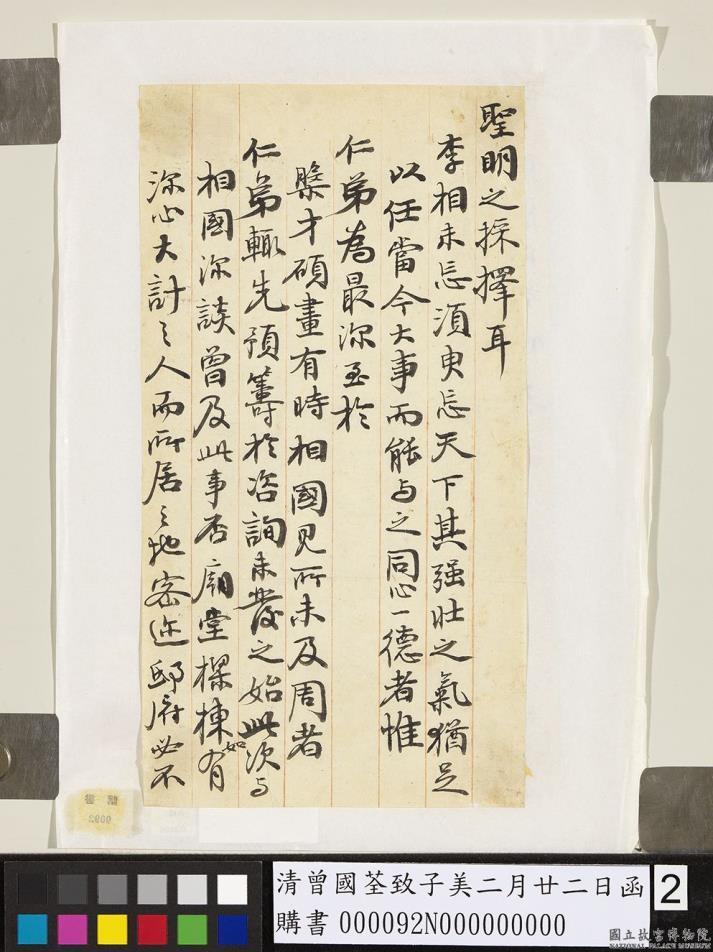 聖明之採擇耳
李相未忘須臾忘天下其强壯之氣猶足
以任當今大事而能与之同心一德者惟
仁弟為最深至於
槃才碩畫有時相國見所未及周者
仁弟輒先預籌於咨詢未發之始此次与
相國深談曾及此事否廟堂樑棟有如
深心大計之人而所居之地密迩邸府必不
清曾國荃致子美二月廿二日函
購書 000092N000000000
2
國立故宮博物院
NATIONAL PALACE MUSEUM